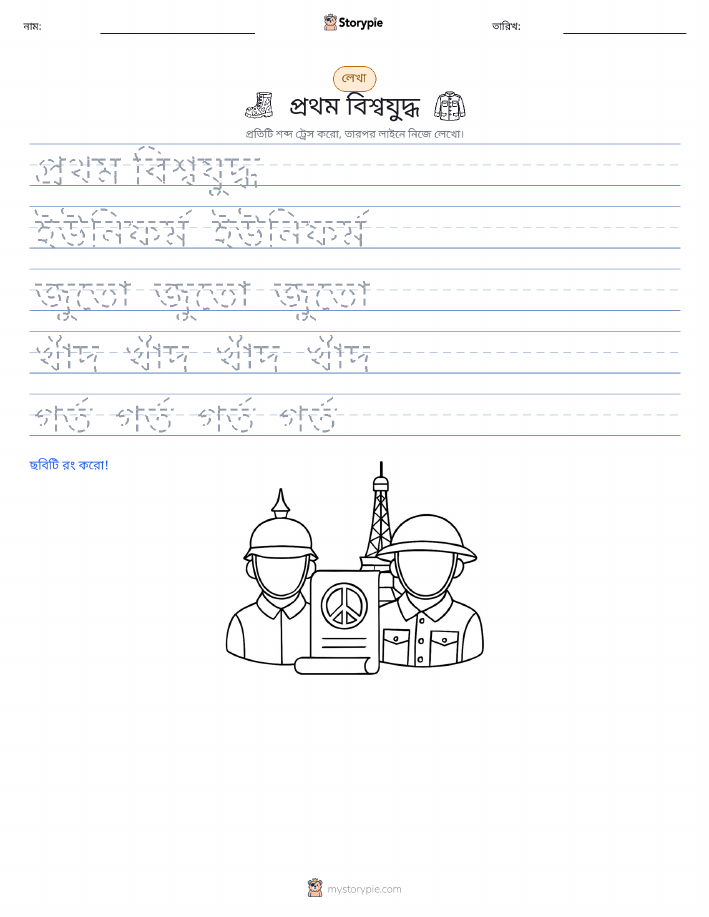 নাম:
Storypie
তারিখ:
লেখা
প্রথম বিশ্বযুদ্ধ
প্রতিটি শব্দ ট্রেস করো, তারপর লাইনে নিজে লেখো।
প্রথম বিশ্বযুদ্ধ
ইউনিফর্ম ইউনিফর্ম
জুতো জুতো জুতো
খাঁদ খাঁদ খাঁদ খাঁদ
গর্ত গর্ত গর্ত গর্ত
ছবিটি রং করো!
mystorypie.com